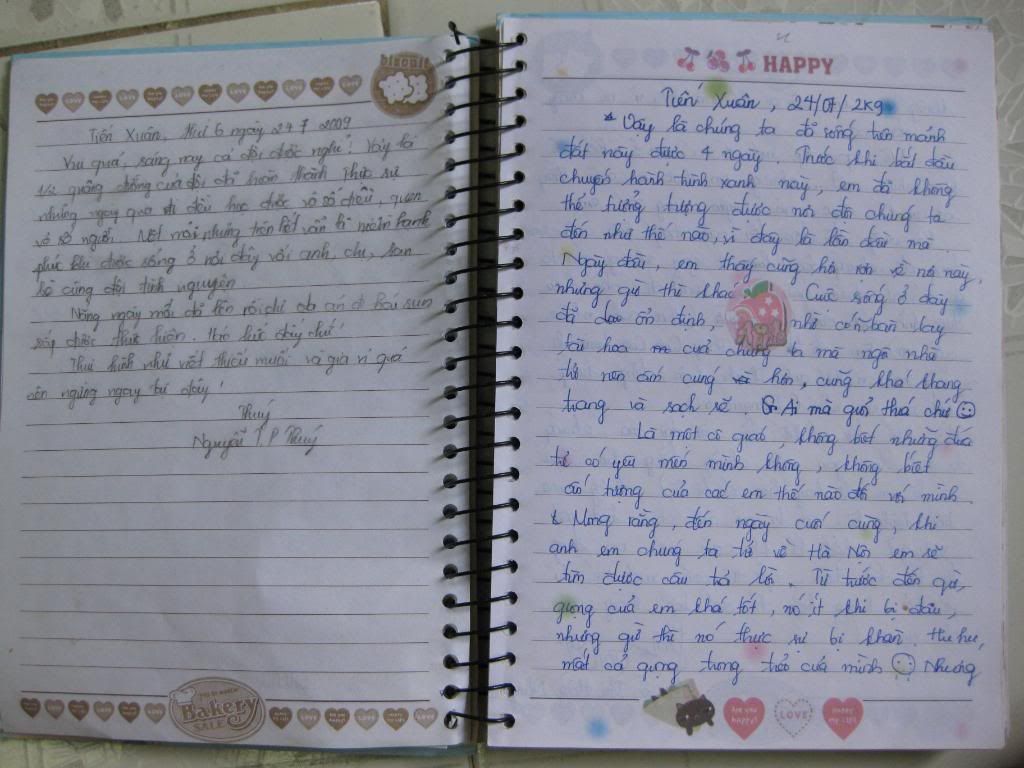 biscuit
Tiến Xuân. thứ 6 ngày 24 7 2009
Vui quá, sáng nay cả đội được nghỉ! Vậy là
quãng đường của đội đã hoàn thành thực sự
những ngày qua đi đều học được vô số điều, quen
vô số người. Mệt mỏi nhưng trên hết vẫn là niềm hạnh
phúc khi được sống ở nơi đây với anh, chị, em
cùng đội tình nguyện
sắp được thực hiện. Háo hức đấy chứ!
Thư hình như viết thiếu muối và gia vị quá
nên ngừng ngay tại đây!
Thuý
Nguyễn T.P Thuý
LOVE
Bakery
SALE
HAPPY
Tiến Xuân, 24/07/2kg
* Vậy là chúng ta đã sống trên mảnh
đất này được 4 ngày. Trước khi bắt đầu
chuyến hành trình xanh này, em đã không
thể tưởng tượng được nơi đội chúng ta
đến như thế nào, vì đây là lần đầu mà.
Ngày đầu, em thấy cũng hơi rợn về nơi này,
nhưng giờ thì khác Cuộc sống ở đây
đã ổn định, nhờ có bàn tay
tài hoa của chúng ta mà ngôi nhà
trở nên ấm cúng hơn, cũng khá khang
trang và sạch sẽ. Ai mà quở thá chứ ☺
Là một cô giáo, không biết những đứa
trẻ có yêu mến mình không, không biết
ấn tượng của các em thế nào đối với mình.
Mong rằng, đến ngày cuối cùng, khi
anh em chúng ta trở về Hà Nội em sẽ
tìm được câu trả lời. Từ trước đến giờ,
giọng của em khá tốt, nó ít khi bị đau,
nhưng giờ thì nó thực sự bị khàn. Hu hu,
mất cả giọng trong trẻo của mình ☺ Nhưng
Are you happy?
LOVE